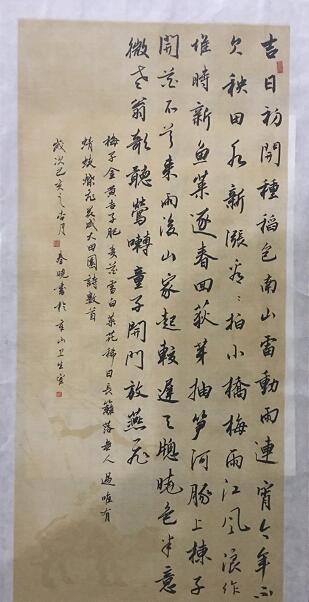 吉日初開種稻包南山雷動雨連宵今年不
欠秧田水新漲看〻拍小橋梅雨江風浪作
堆時新魚菜逐春回荻芽抽笋河豚上楝子
開花石首来雨後山家起較遲天窗曉色半熹
微老翁欹聽鶯囀童子開門放燕飛
梅子金黄杏子肥麦花雪白菜花稀日長籬落無人過唯有
蜻蜓蛱蝶飛范成大田園詩數首
歲次己亥之杏月春曉書於山卫生室